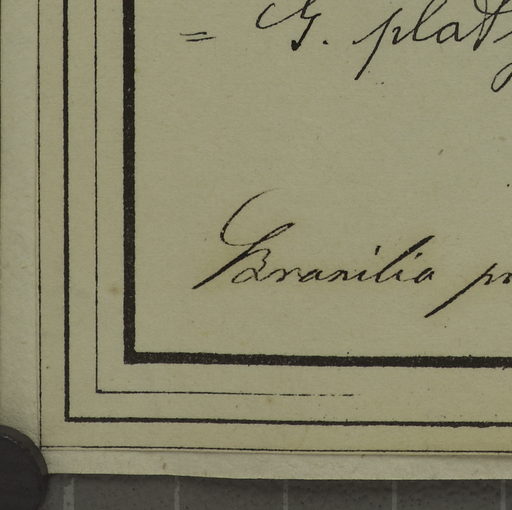 = G. plat
Branilia pr